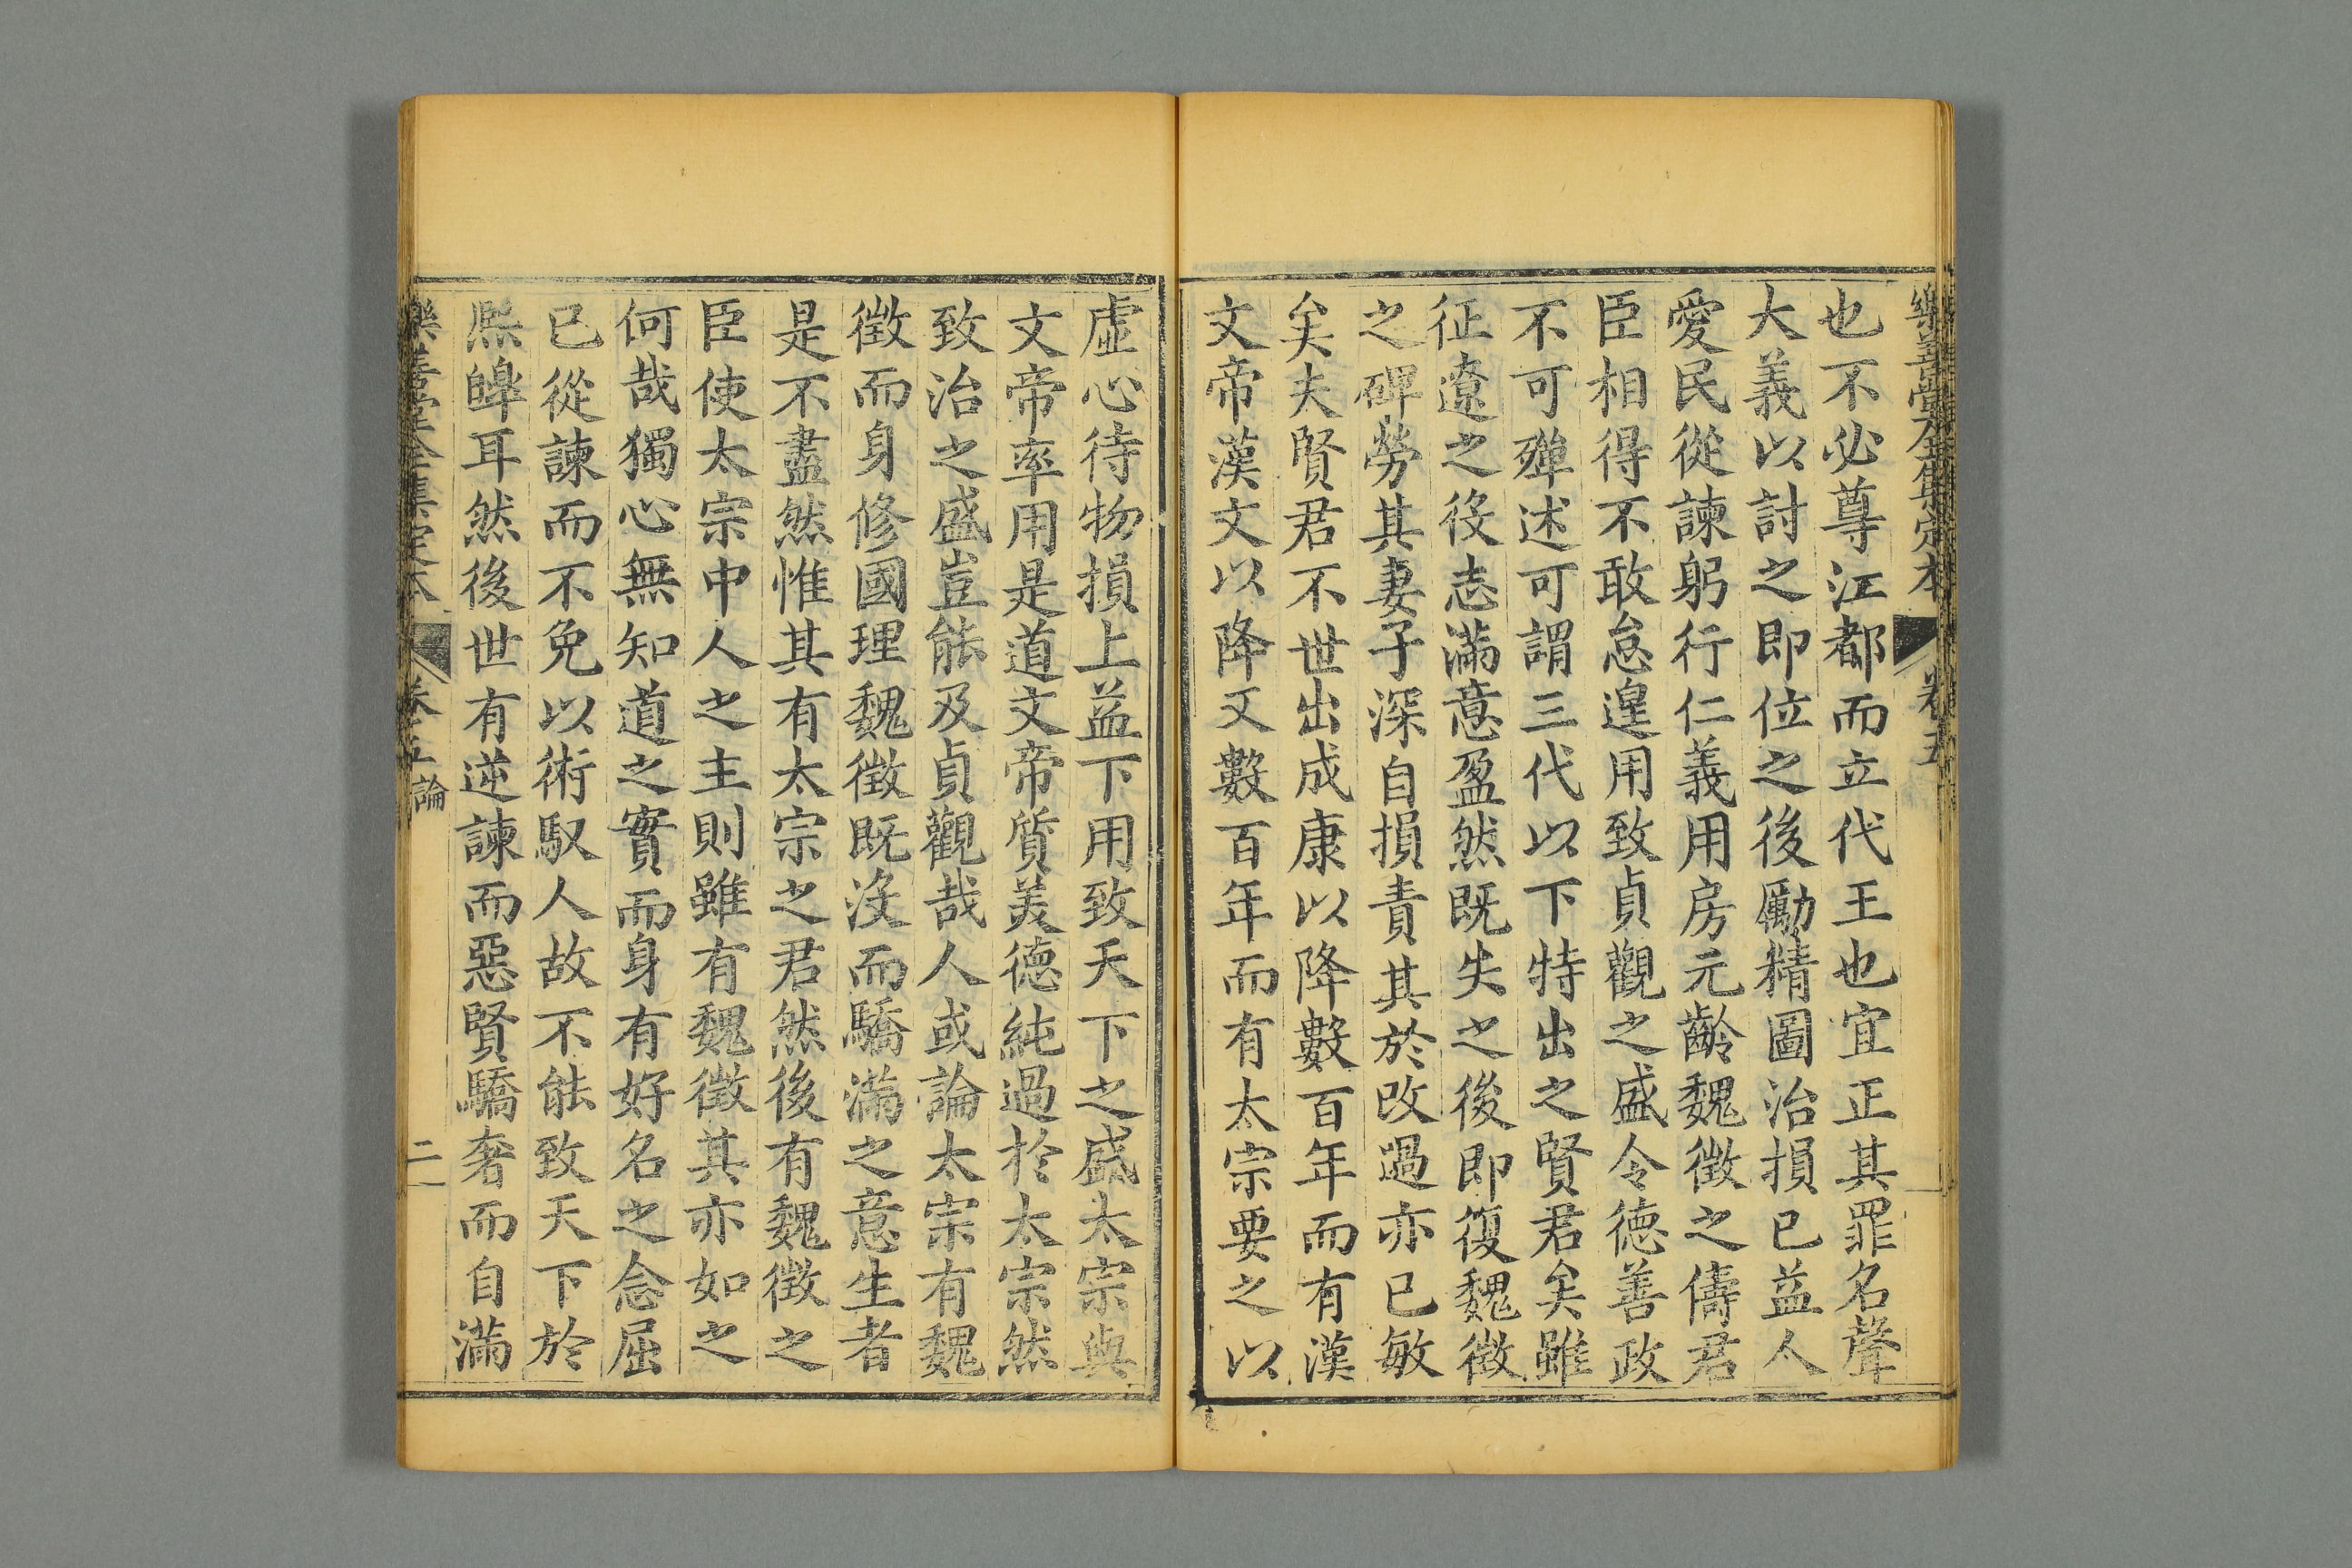 樂善堂全集定本 卷五
也不必尊江都而立代王也宜正其罪名聲
大義以討之即位之後勵精圖治損已益人
愛民從諫躬行仁義用房元齡魏徵之儔君
臣相得不敢怠遑用致貞觀之盛令德善政
不可殫述可謂三代以下特出之賢君矣雖
征遼之役志滿意盈然既失之後即復魏徵
之碑勞其妻子深自損責其於改過亦已敏
矣夫賢君不世出成康以降數百年而有漢
文帝漢文以降又數百年而有太宗要之以
虛心待物損上益下用致天下之盛太宗與
文帝率用是道文帝質美德純過於太宗然
致治之盛豈能及貞觀哉人或論太宗有魏
徵而身修國理魏徵既沒而驕滿之意生者
是不盡然惟其有太宗之君然後有魏徵之
臣使太宗中人之主則雖有魏徵其亦如之
何哉獨心無知道之實而身有好名之念屈
已從諫而不免以術馭人故不能致天下於
熈皥耳然後世有逆諫而惡賢驕奢而自滿
樂善堂全集定本 卷五 論 二